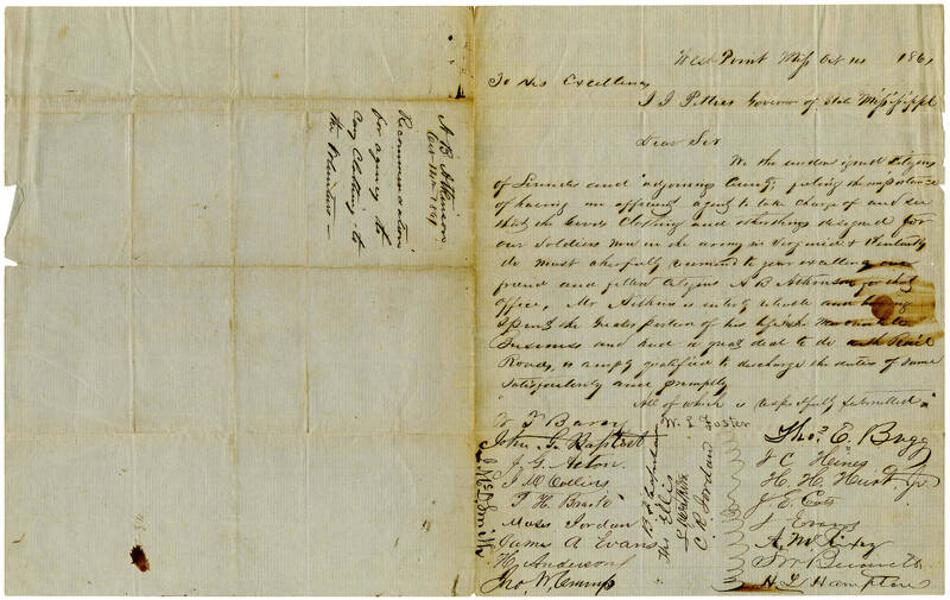 A B Atkinson
Oct 14th 1861
Recommendation
for agency to
Cary Clothing to
the Volunteers
West Point Miss Oct 14 1861
To His Excellency
J J Pettus Governor of State Mississippi
Dear Sir
We the undersigned Citizens
of Lowndes and adjoining County, feeling the importance
of having an efficient agent to take charge of and see
that the Goods Clothing and other things designed for
our Soldiers now in the army in Virginia & Kentucky
do most cheerfully recommend to your excellency our
friend and fellow Citizens A B Atkinson for that
Office, Mr Atkins is entirely reliable and having
Spent the Greater portion of his life in the Mercantile
Business and had a great deal to do with Rail
Roads, is amply qualified to discharge the duties of Same
Satisfactorily and promptly
All of which is respectfully submitted
W. L Foster
John G. Baptist
J. G. Acton.
J M Collins
Moses Jordan
James A Evans
H Anderson
Jno. W. Crump
J. McD. Smith
Thos Ellis
C R Jordan
Thos. E. Bugg
J C Heines
H. H. Hurst Jr
J. Evans
H L Hampton